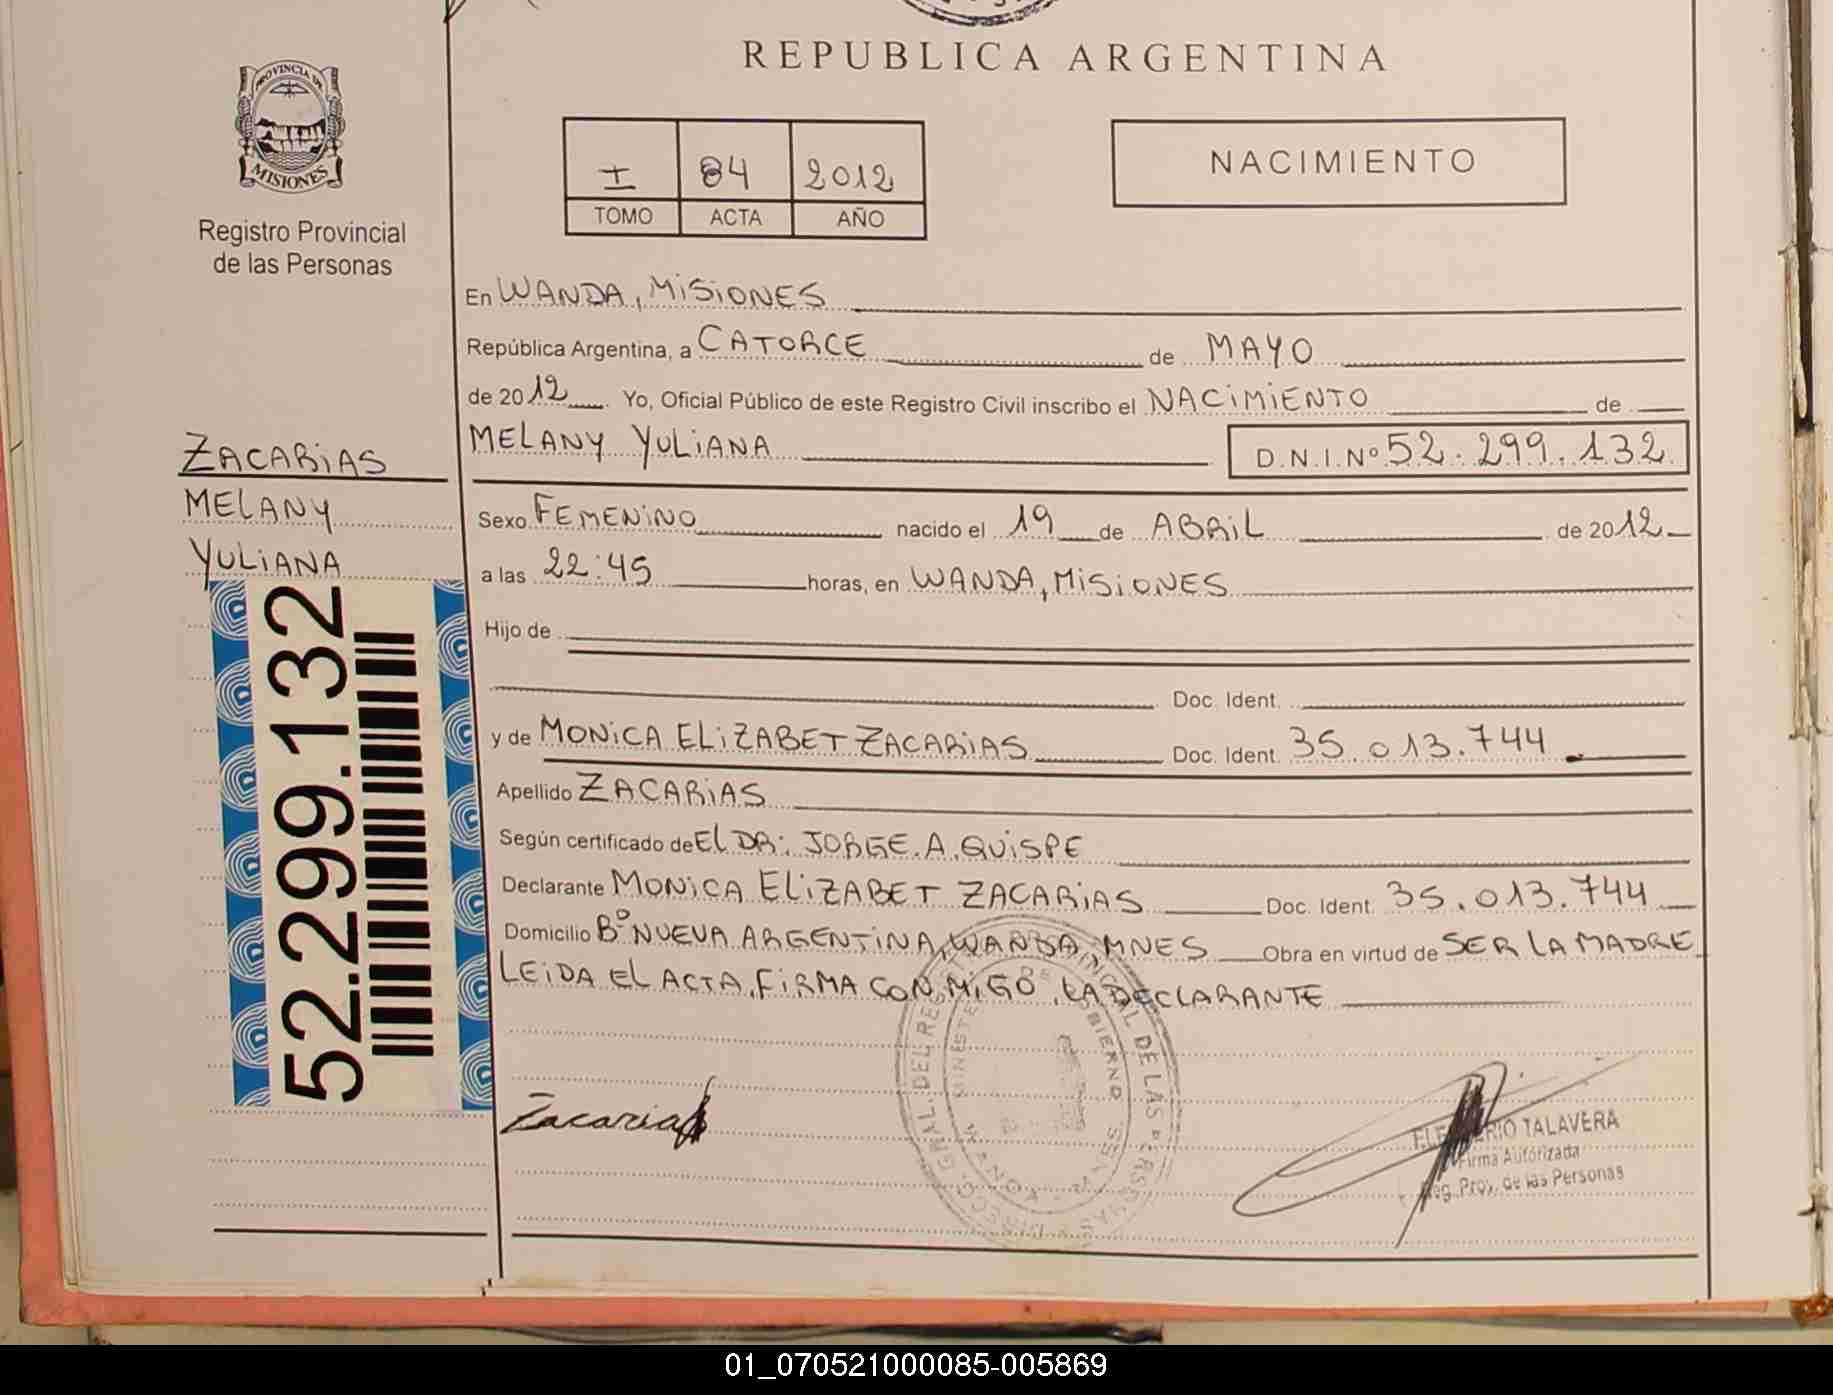 REPUBLICA ARGENTINA
PROVINCIA DE
MISIONES
Registro Provincial
de las Personas
I 84 2012
TOMO ACTA AÑO
NACIMIENTO
En WANDA, MISIONES
República Argentina, a CATORCE de MAYO
de 2012. Yo, Oficial Público de este Registro Civil inscribo el NACIMIENTO de
MELANY YULIANA D.N.I.Nº 52.299.132
ZACARIAS
MELANY
YULIANA
52.299.132
Sexo FEMENINO nacido el 19 de ABRIL de 2012
a las 22:45 horas, en WANDA, MISIONES
Hijo de
Doc. Ident.
y de MONICA ELIZABET ZACARIAS Doc. Ident. 35.013.744
Apellido ZACARIAS
Según certificado de El DR: JORGE.A.QUISPE
Declarante MONICA ELIZABET ZACARIAS Doc. Ident. 35.013.744
Domicilio Bº NUEVA ARGENTINA, WANDA, MNES Obra en virtud de SER LA MADRE
LEIDA EL ACTA, FIRMA CON MIGO, LA DECLARANTE
Zacarias
TALAVERA
Firma Autorizada
Reg. Prov. de las Personas
01_070521000085-005869